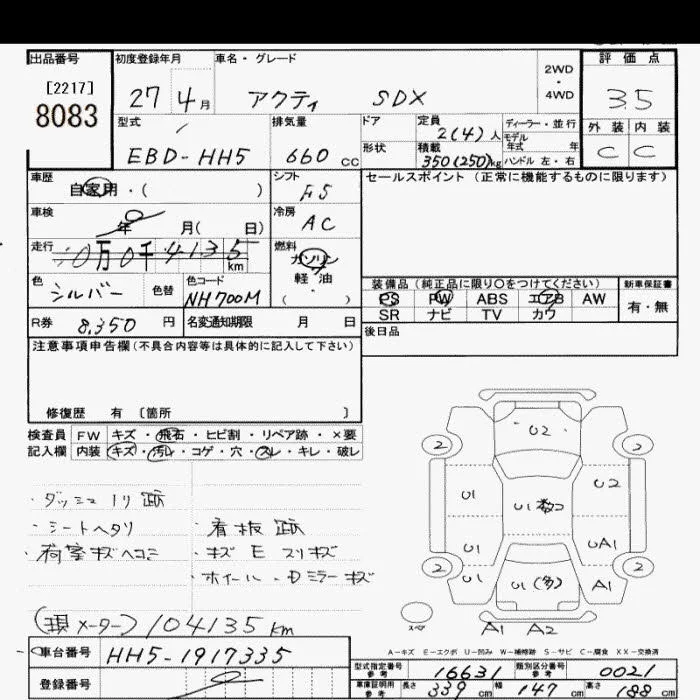 出品番号
[2217]
8083
初度登録年月
27 4月
車名・グレード
アクティ SDX
2WD
・
4WD
評価点
3.5
型式
EBD-HH5
排気量
660 cc
ドア
形状
定員
2(4)人
積載
350(250)kg
ディーラー・並行
モデル
年式 年
ハンドル 左・右
外装 内装
C C
車歴
自家用・( )
シフト
F5
セールスポイント (正常に機能するものに限ります)
車検
年 月( 日)
冷房
AC
走行
0万0千4135
km
燃料
ガソリン
軽・油
・( )
色
シルバー
色替
色コード
NH700M
装備品(純正品に限り○をつけてください)
新車保証書
PS PW ABS エアB AW
SR ナビ TV カワ
有・無
R券 8,350 円
名変通知期限 月 日
後日品
注意事項申告欄(不具合内容等は具体的に記入して下さい)
修復歴 有 〔箇所 〕
検査員 FW キズ・飛石・ヒビ割・リペア跡・×要
記入欄 内装 キズ・汚れ・コゲ・穴・スレ・キレ・破レ
・ダッシュノリ跡
・シートヘタリ
・看板跡
・荷室キズヘコミ
・キズ E スリキズ
・ホイール・Dミラーキズ
2 2
U2
U1 U2
U1
U1 UA1
2 2
U1 U1(多) A1
スペア
A1 A2
(現メーター)104135km
A-キズ E-エクボ U-凹み W-補修跡 S-サビ C-腐食 XX-交換済
車台番号 HH5-1917335
登録番号
型式指定番号
参考
16631
類別区分番号
参考
0021
車庫証明用
参考
長さ 339 cm 幅 147 cm 高さ 188 cm